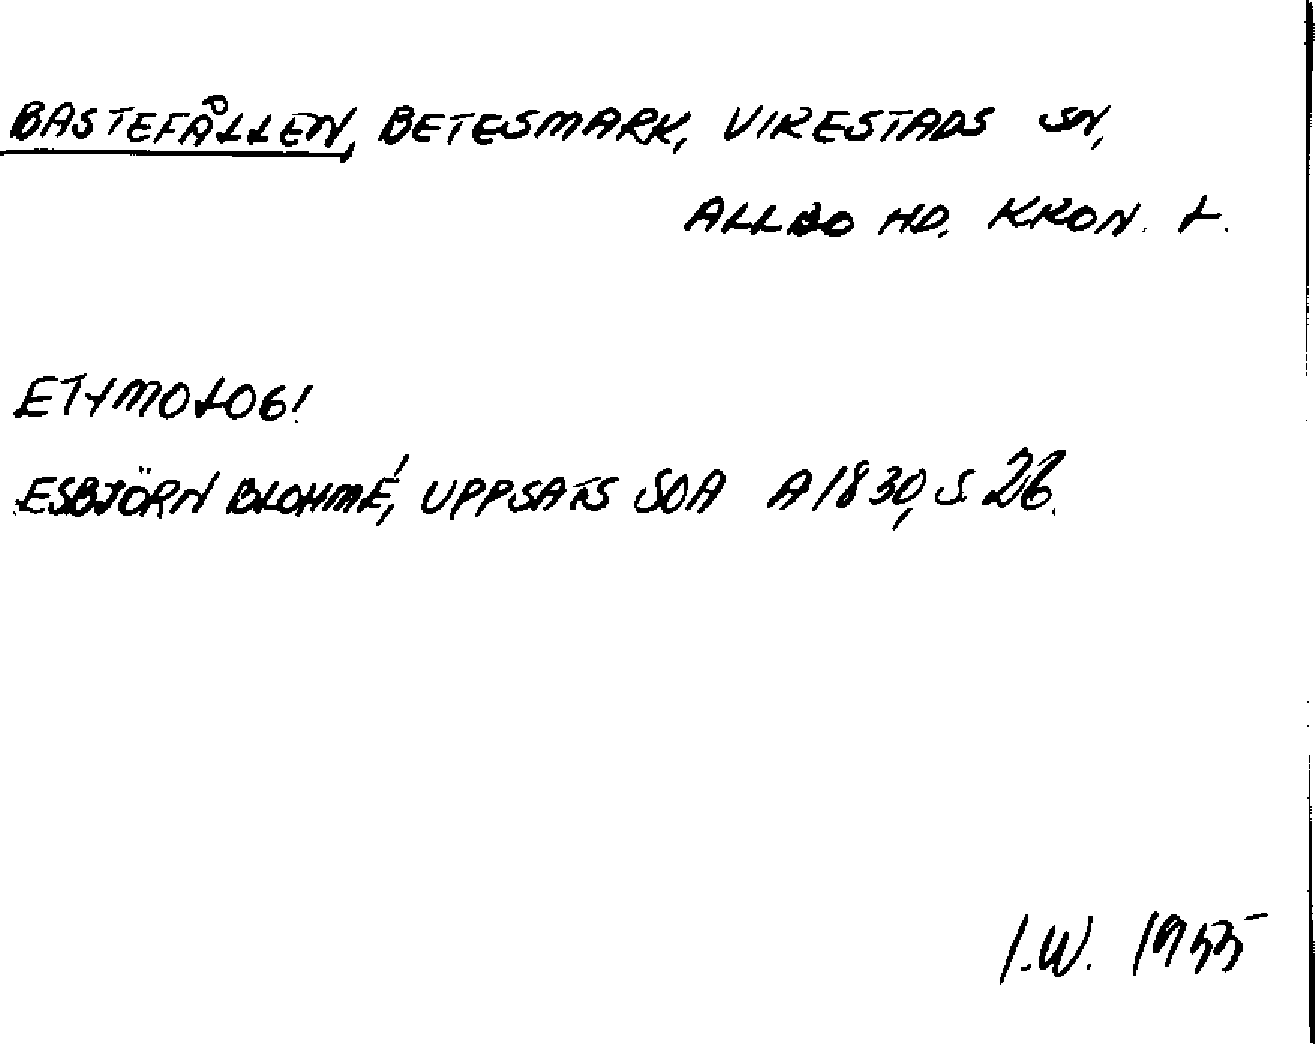 BASTEFÅLLEN, BETESMARK, VIRESTADS SN,
ALLBO HD. KRON. L.
ETYMOLOGI
ESBJÖRN BLOHMÉ, UPPSATS SOA A 1830, S 26.
I.W. 1955